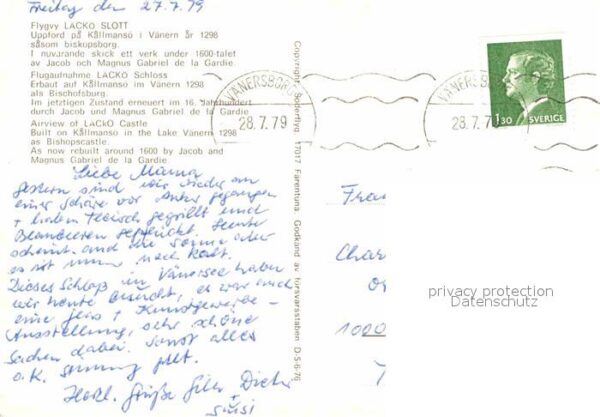 Freitag den 27.7.79
Flygvy LÄCKÖ SLOTT
Uppförd på Kållmansö i Vänern år 1298
såsom biskopsborg.
I nuvarande skick ett verk under 1600-talet
av Jacob och Magnus Gabriel de la Gardie.
Flugaufnahme LÄCKÖ Schloss
Erbaut auf Kållmansö im Vänern 1298
als Bischofsburg.
Im jetztigen Zustand erneuert im 16. Jahrhundert
durch Jacob und Magnus Gabriel de la Gardie.
Airview of LÄCKÖ Castle
Built on Kållmansö in the Lake Vänern 1298
as Bishopscastle.
As now rebuilt around 1600 by Jacob and
Magnus Gabriel de la Gardie.
Liebe Mama
gestern sind wir wieder an
einer Schäre vor Anker gegangen
+ haben Fleisch gegrillt und
Blaubeeren gepflückt. Heute
scheint die Sonne aber
es ist nach kalt.
Dieses Schloss im Vänersee haben
wir heute besucht, es war auch
eine + Kunstgewerbe-
Ausstellung, sehr schöne
Sachen dabei. Sonst alles
o.K.
Herzl. Grüße Dieter
+
Susi
Copyright: 17017 Färentuna Godkänd av försvarsstaben D-5-6-76
VÄNERSBORG
28.7.79
VÄNERSBORG
28.7.79
1.30 SVERIGE
Frau
Char
1000
privacy protection
Datenschutz